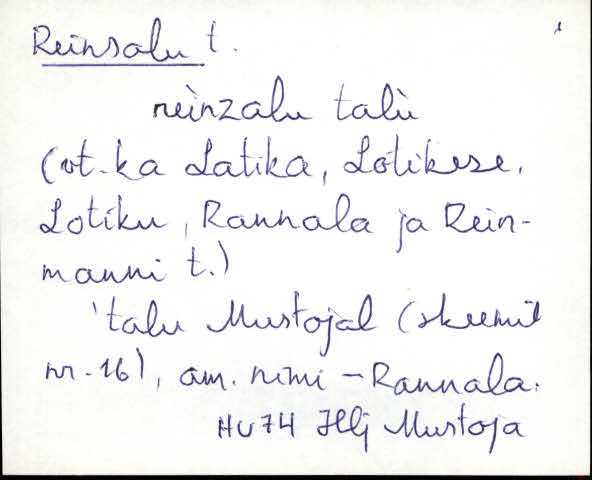 Reinsalu t.
rèinzalu talù
(vt. ka Latika, Lotikese,
Lotiku, Rannala ja Rein-
manni t.)
'talu Mustojal (skeemil
nr. 16), am. nimi - Rannala.
HU74 Hlj Mustoja